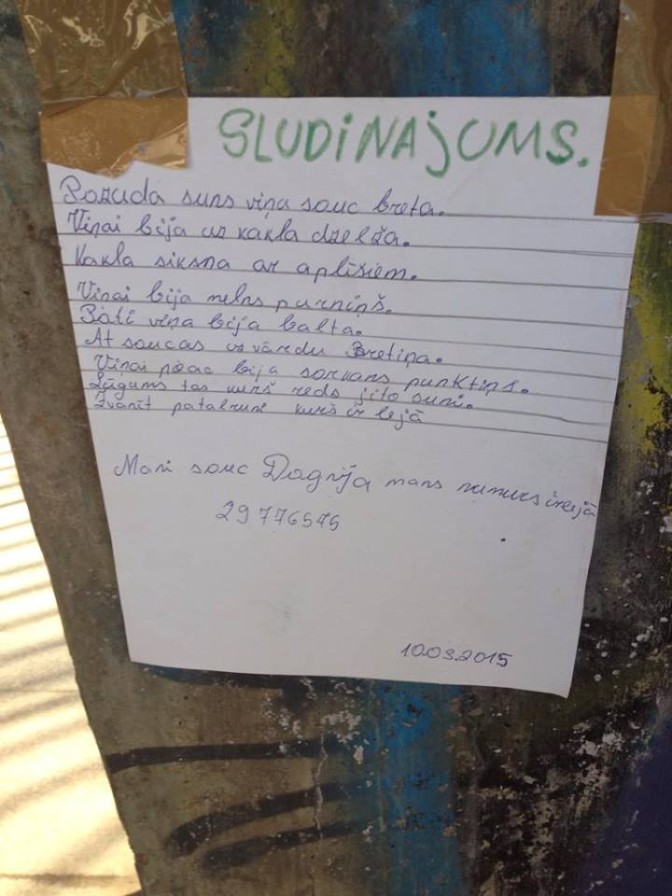 SLUDINAJUMS.
Pozuda suns viņa souc breta.
Viņai bija uz kakla dzelža.
Kakla siksna ar aplīšiem.
Viņai bija melns purniņš.
Pati viņa bija balta.
At soucas uz vārdu Bretiņa.
Viņai bija sorkans punktiņs.
Lūgums tas kurš reds šito suni.
Zvanīt patalruni kurš ir lejā
Mani souc Dagnija mans numurs irlejā
29776575
10.03.2015